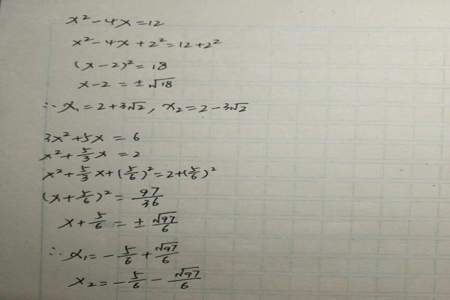 x²-4x=12
x²-4x+2²=12+2²
(x-2)²=18
x-2=±√18
∴x₁=2+3√2, x₂=2-3√2
3x²+5x=6
x²+5/3x=2
x²+5/3x+(5/6)²=2+(5/6)²
(x+5/6)²=97/36
x+5/6=±√97/6
∴x₁=-5/6+√97/6
x₂=-5/6-√97/6